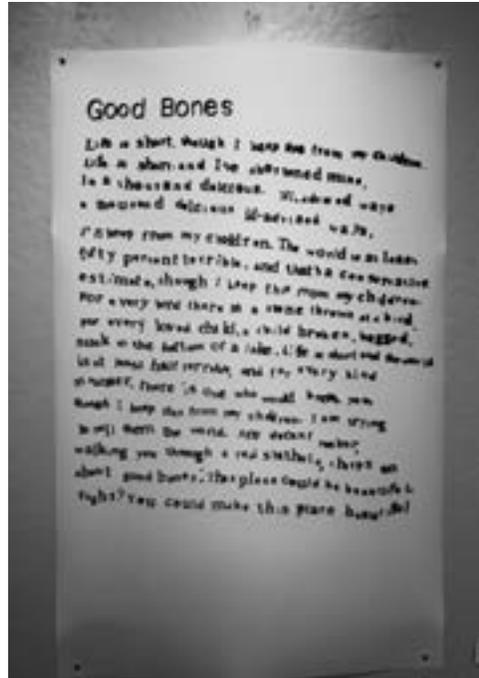 Good Bones
Life is short, though I keep this from my children.
Life is short, and I've shortened mine,
in a thousand delicious, ill-advised ways
a thousand delicious ill-advised ways,
I'll keep from my children. The world is at least
fifty percent terrible, and that's a conservative
estimate, though I keep this from my children.
For every bird there is a stone thrown at a bird.
For every loved child, a child broken, bagged,
sunk in the bottom of a lake. Life is short and the world
is at least half terrible, and for every kind
stranger, there is one who would break you
though I keep this from my children. I am trying
to sell them the world. Any decent realtor,
walking you through a real shithole, chirps on
about good bones: This place could be beautiful
right? You could make this place beautiful